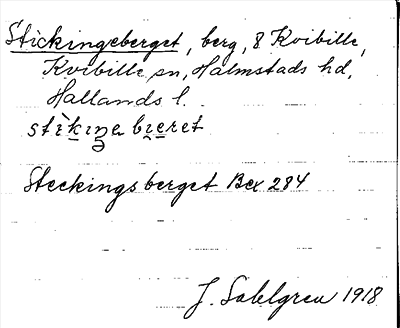 Stickingeberget, berg, 8 Kvibille,
Kvibille sn, Halmstads hd,
Hallands l.
stìkiŋə bi̯eret
Steckingsberget Bex 284
J. Sahlgren 1918